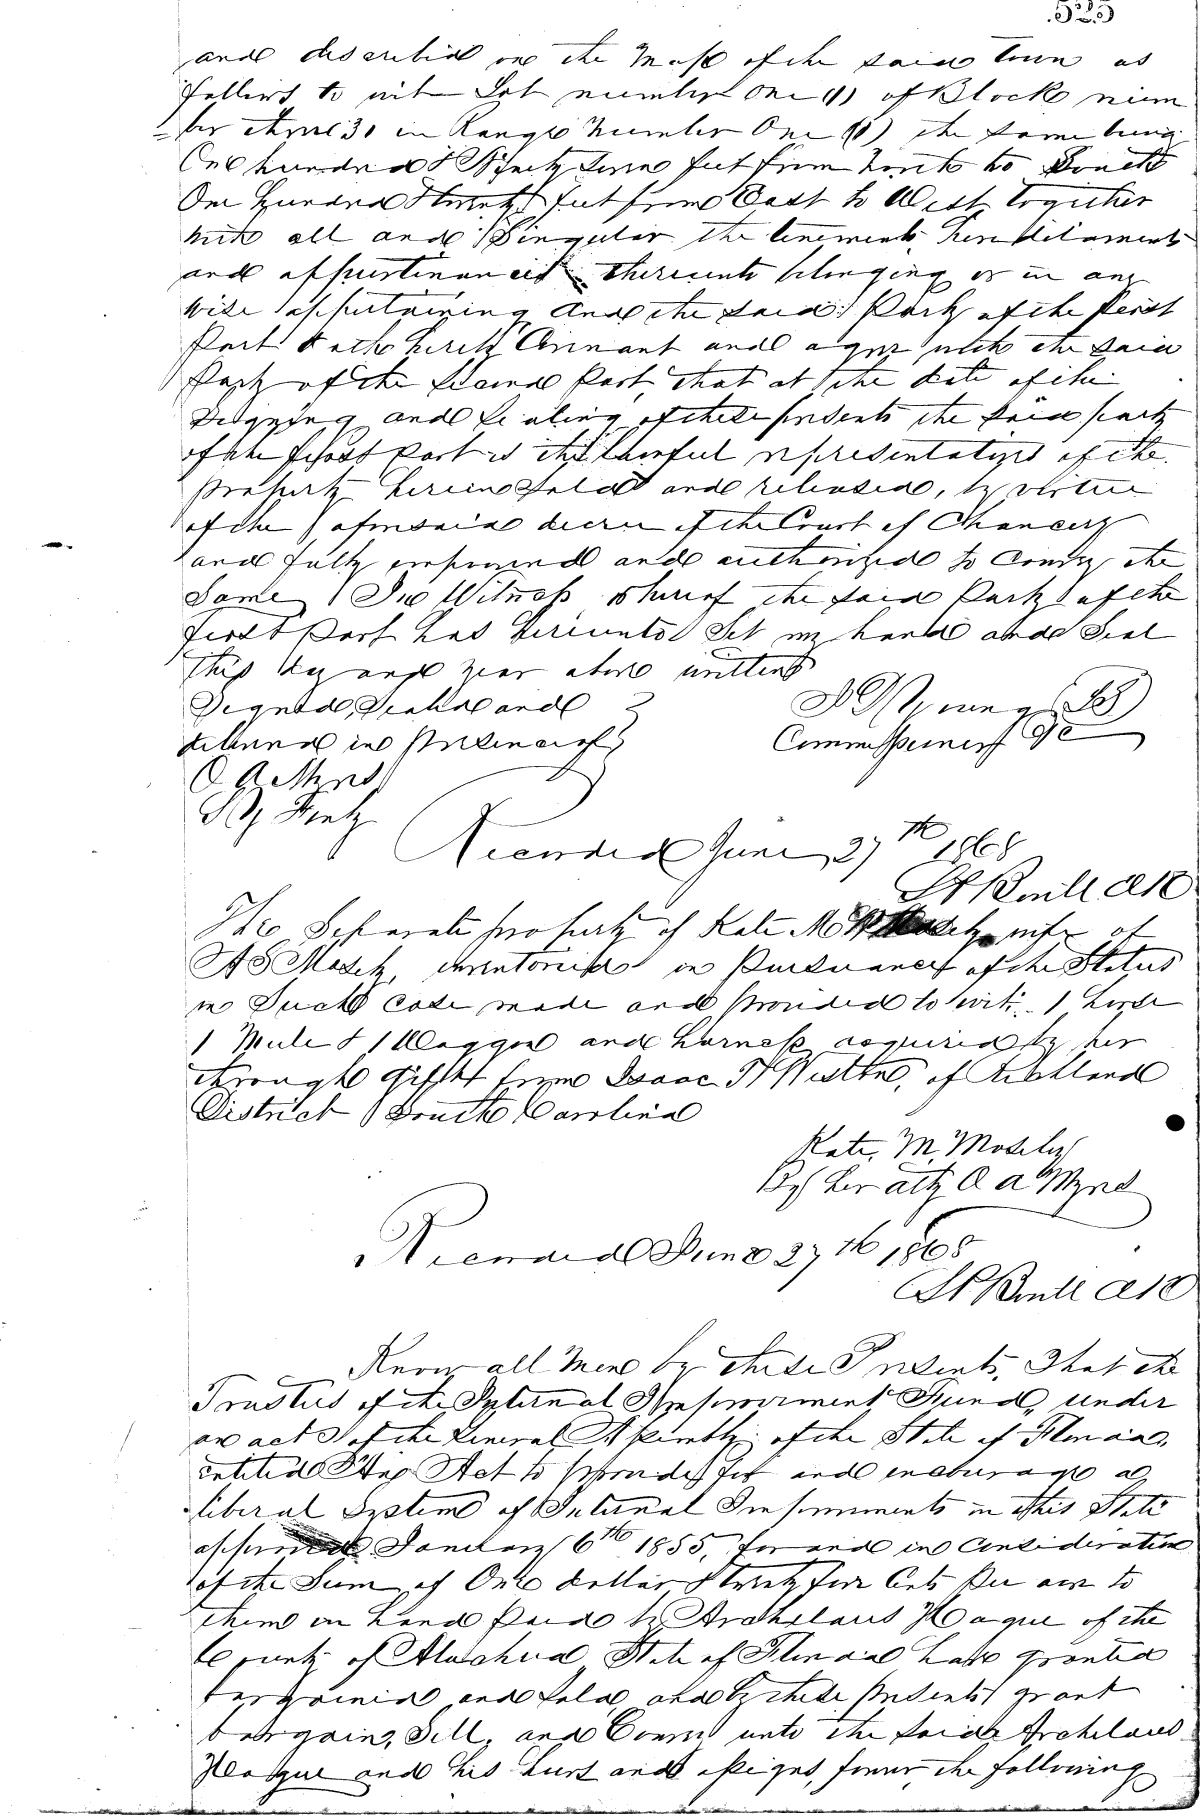 525
and described on the Map of the said Town as
follows to wit Lot number One (1) of Block num
=ber three 3, in Range Number One (1) the same being
One hundred & Ninety Seven feet from North to South
One Hundred & twenty feet from East to West together
with all and Singular the tenements, hereditaments
and appurtinances thereunto belonging or in any
wise appertaining And the said Party of the first
Part doth hereby Covenant and agree with the said
Party of the Second Part, that at the date of the
Signing and Sealing of these presents the said party
of the first Part is the lawful representatives of the
property herein Sold and released, by virtue
of the aforesaid decree of the Court of Chancery
and fully empowered and authorized to Convey the
Same, In Witness whereof the said Party of the
first Part has hereunto Set my hand and Seal
this day and year above written
Signed, Sealed and
delivered in presence of
Young (LS)
Commissioner &c
O A Myres
Recorded June 27th 1868
The Separate property of Kate M Mosely wife of
A S Mosely, inventoried in Pursuance of the Status
in Such case made and provided to wit: 1 horse
1 Mule & 1 Waggon and harness acquired by her
through Gift from Isaac of Richland
District South Carolina
Kate. M. Mosely
By her atty O A Myres
Recorded June 27th 1868
Know all Men by these Presents, That the
Trustees of the Internal Improvement Fund, under
an act of the General Assembly of the State of Florida,
entitled "An Act to provide for and encourage a
liberal System of Internal Improvements in this State
approved January 6th 1855, for and in Consideration
of the Sum of One dollar & twenty five Cents Per acre to
them in hand Paid by Archelaus Hague of the
County of Alachua State of Florida have granted
bargained and Sold, and by these presents grant
bargain, Sell, and Convey unto the said Archelaus
Hague and his heirs and assigns, forever, the following